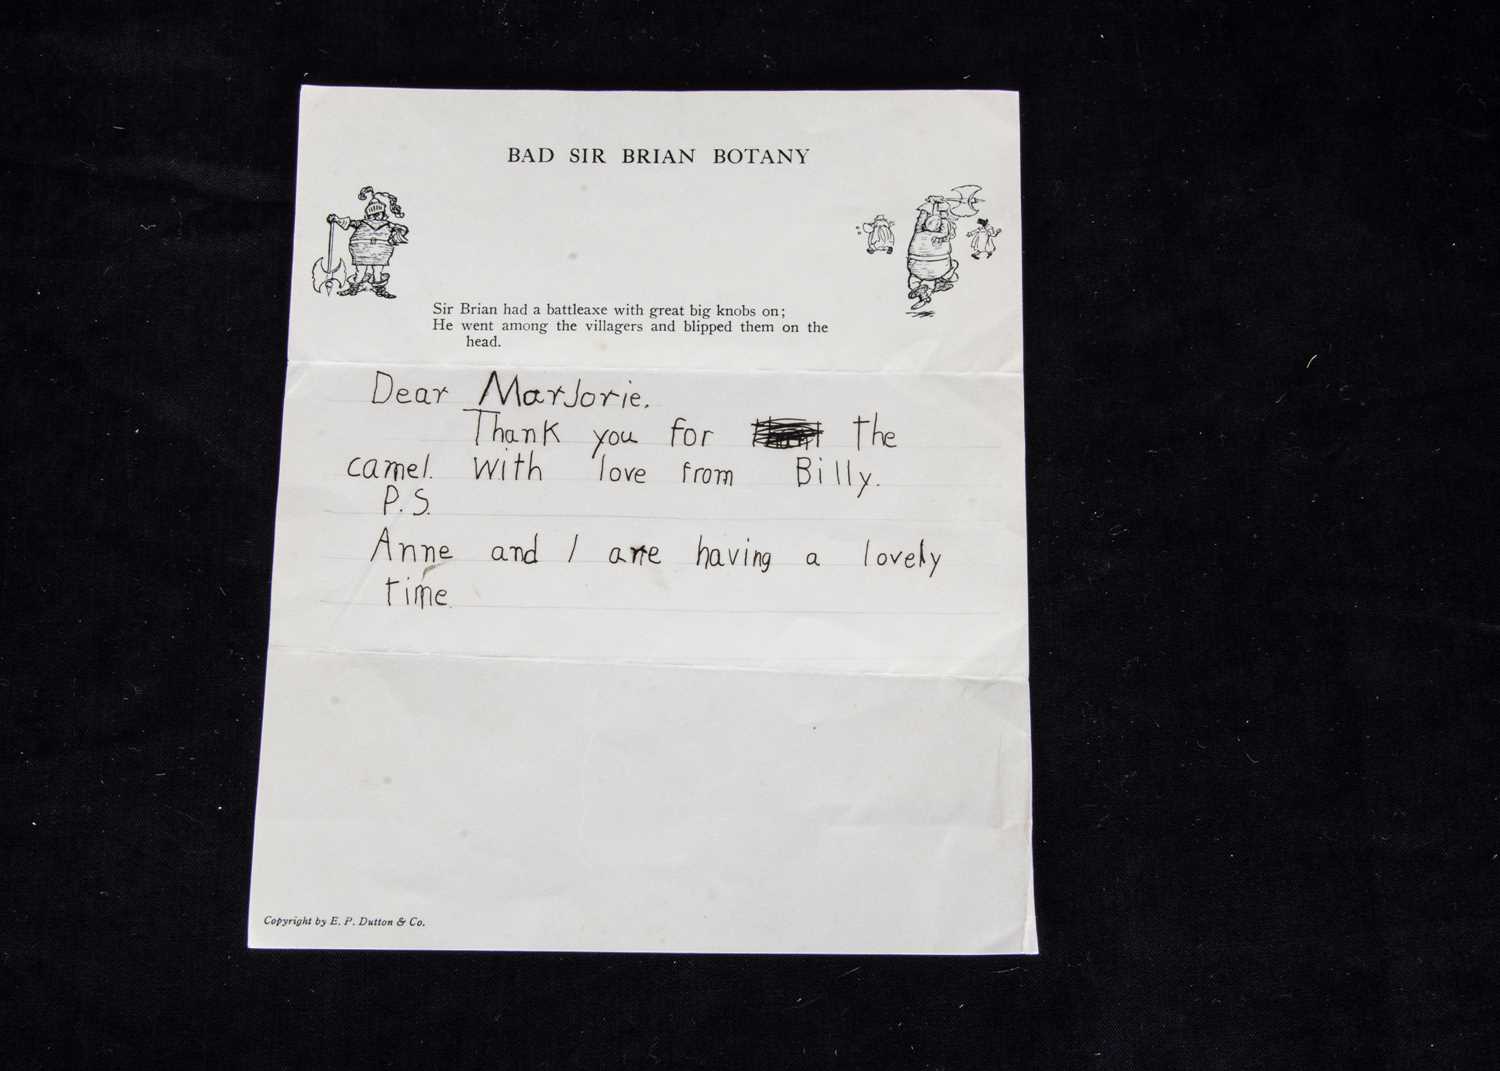 BAD SIR BRIAN BOTANY
Sir Brian had a battleaxe with great big knobs on;
He went among the villagers and blipped them on the
head.
Dear Marjorie.
Thank you for the
camel. With love from Billy.
P.S.
Anne and I are having a lovely
time.
Copyright by E. P. Dutton & Co.